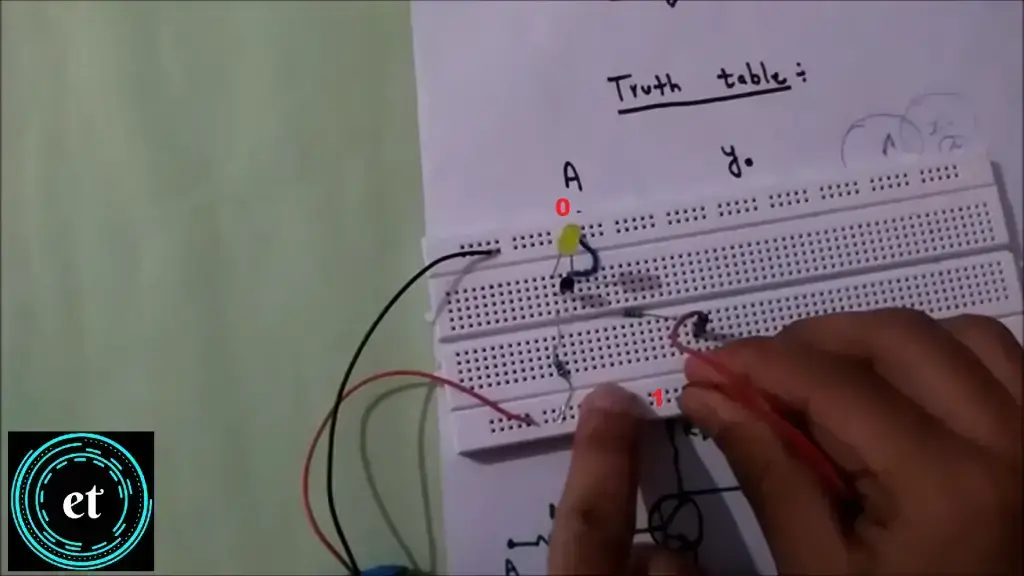 Truth table:
A y.
0
1
A
et